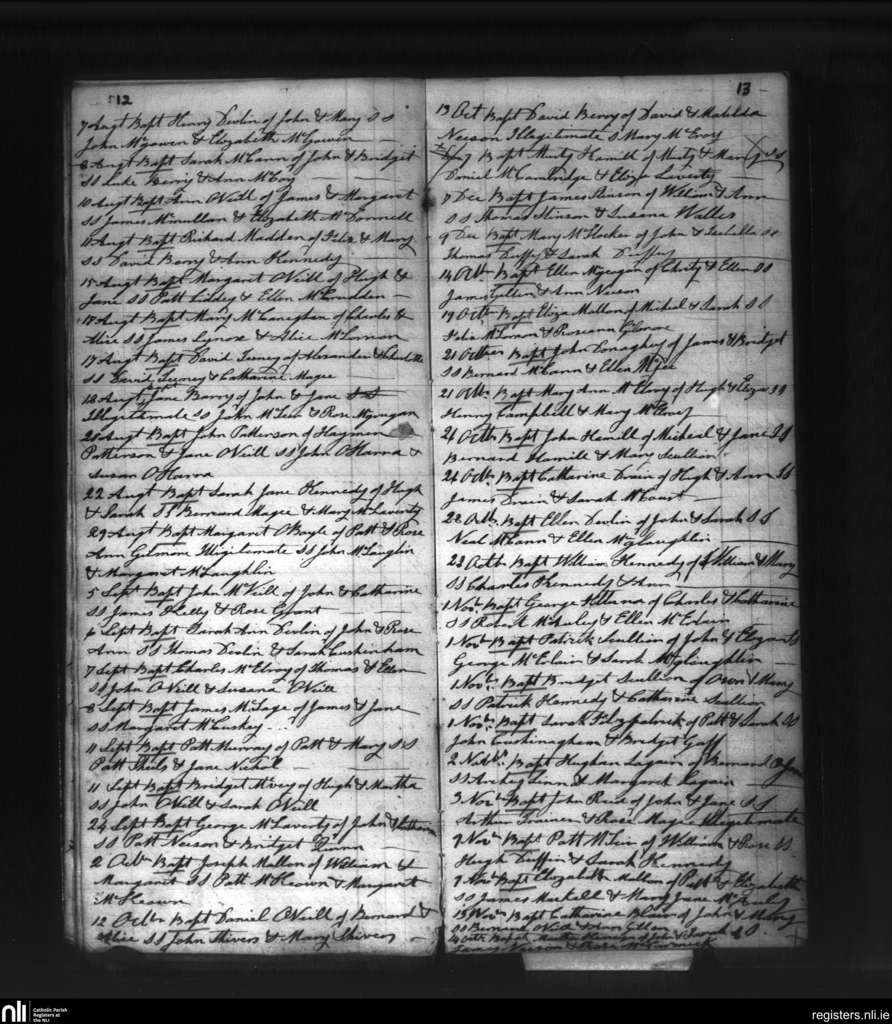 12
7 Augt Bapt Henry Devlin of John & Mary SS
John McGowen & Elizabeth McGowen
8 Augt Bapt Sarah McCann of John & Bridget
SS Luke Berry & Ann McCoy
10 Augt Bapt Ann ONeill of James & Margaret
SS James McMullan & Elizabeth McDonnell
11 Augt Bapt Richard Madden of Felix & Mary
SS David Berry & Ann Kennedy
15 Augt Bapt Margaret ONeill of Hugh &
Jane SS Patt Liddey & Ellen McCrudden
17 Augt Bapt Mary McCaneghan of Charles &
Alice SS James Lynox & Alice McLornon
17 Augt Bapt David Feeney of Alexander &
SS David Feeney & Catharine Magee
18 Augt Jane Barry of John & Jane SS
Illegitemate SS John McLeer & Rose
20 Augt Bapt John Patterson of Haymen
Patterson & Jane ONeill SS John OHarra &
Susan OHarra
22 Augt Bapt Sarah Jane Kennedy of Hugh
& Sarah SS Bernard Magee & Mary McLaverty
29 Augt Bapt Margaret OBoyle of Patt & Rose
Ann Gilmore Illigitemate SS John McLauglin
& Margaret McLaughlin
5 Sept Bapt John McNeill of John & Catharine
SS James Kelly & Rose Grant
6 Sept Bapt Sarah Ann Devlin of John & Rose
Ann SS Thomas Devlin & Sarah Cushinham
7 Sept Bapt Charles McElroy of Thomas & Ellen
SS John ONeill & Susana ONeill
8 Sept Bapt James of James & Jane
SS Margaret McCuskey
11 Sept Bapt Patt Murray of Patt & Mary SS
Patt Shiels & Jane
11 Sept Bapt Bridget McVey of Hugh & Martha
SS John ONeill & Sarah ONeill
24 Sept Bapt George McLaverty of John & Catharine
SS Patt Neeson & Bridget Quinn
2 Octr Bapt Joseph Mallon of William &
Margaret SS Patt McKeown & Margaret
McKeown
12 Octbr Bapt Daniel ONeill of Bernard &
Alice SS John Shivers & Mary Shivers
13
13 Oct Bapt David Berry of David & Matilda
Neeson Illegitimate S Mary McEvoy
7 Bapt Murty Hamill of Murty & Mary SS
Daniel McCambridge & Eliza Laverty
7 Dec Bapt James of William & Ann
SS Thomas Stinson & Susana Walles
9 Dec Bapt Mary of John & Isabella SS
Thomas Duffy & Sarah Duffy
14 Octr Bapt Ellen of Christy & Ellen SS
James & Ann Neeson
19 Octr Bapt Eliza Mallon of Micheal & Sarah SS
Felix McLornon & Roseann
21 Octber Bapt John Conaghey of James & Bridget
SS Bernard McCann & Ellen McGee
21 Octbr Bapt Mary Ann McElroy of Hugh & Eliza SS
Henry Campbell & Mary McElroy
21 Octbr Bapt John Hamill of Micheal & Jane SS
Bernard Hamill & Mary Scullion
26 Octbr Bapt Catharine Drain of Hugh & Ann SS
James Drain & Sarah McCourt
28 Octbr Bapt Ellen Devlin of John & Sarah SS
Neal McCann & Ellen McGlaughlin
23 Octbr Bapt William Kennedy of William & Mary
SS Charles Kennedy & Ann
1 Novr Bapt George of Charles & Catharine
SS Robert McAuley & Ellen McErlain
1 Novr Bapt Patrick Scullion of John & Eliza SS
George McErlain & Sarah McGlaughlin
1 Novr Bapt Bridget Scullion of Owen & Mary
SS Patrick Kennedy & Catharine Scullion
1 Novr Bapt Sarah Fitzpatrick of Patt & Sarah SS
John Cushinagham & Bridget Goff
2 Novbr Bapt Hughan Lagan of Bernard &
SS Archey Linn & Margaret Lagan
3 Novr Bapt John Reid of John & Jane SS
Arthur Trainer & Rose Magee Illegitemate
9 Novr Bapt Patt McLeer of William & Rose SS
Hugh Duffin & Sarah Kennedy
9 Novr Bapt Elizabeth Mallon of Patt & Elizabeth
SS James Mackell & Mary Jane McAuley
15 Novbr Bapt Catharine of John & Mary
SS Bernard & Ann
of & Sarah SS
James & Rose McCormick
nli
Catholic Parish
Registers at
the NLI
registers.nli.ie